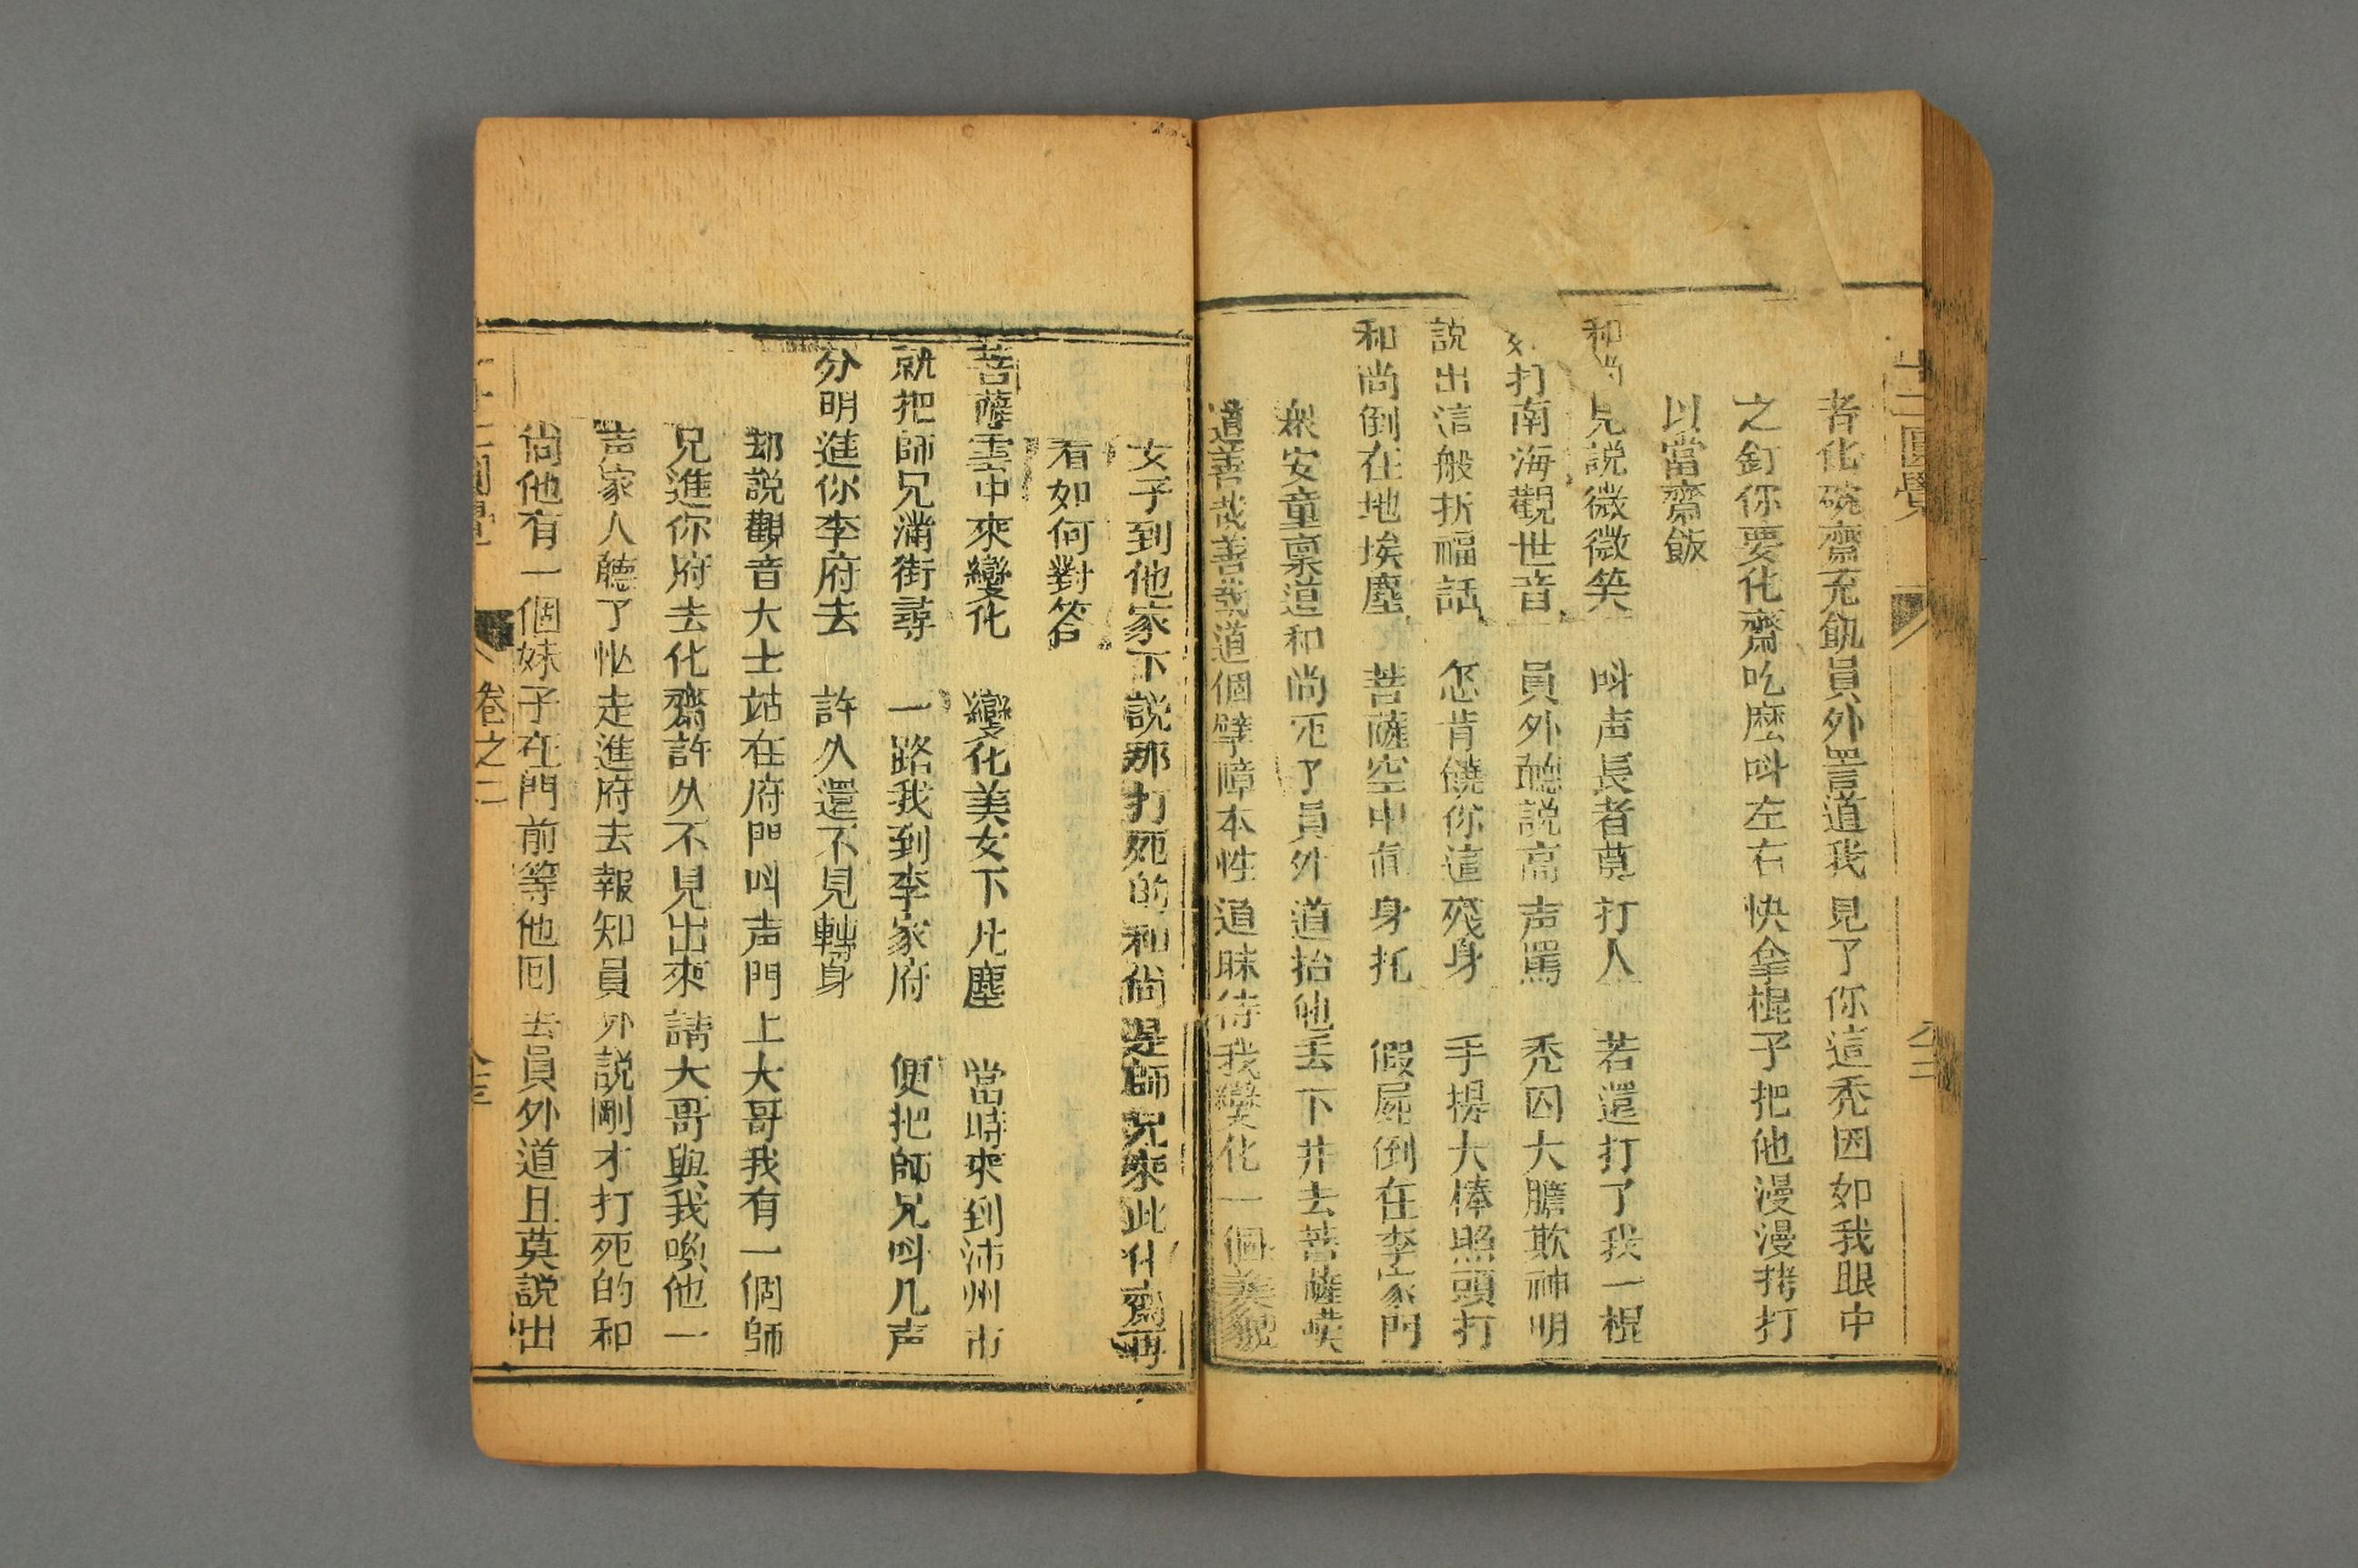 十二圓覺
者化碗齋充飢員外詈道我見了你這禿囚如我眼中
之釘你要化齋吃麽呌左右快拿棍子把他漫漫拷打
以當齋飯
和尚見説微微笑　呌声長者莫打人　若還打了我一棍
打南海觀世音　員外聽説高声罵　禿囚大膽欺神明
説出這般折福話　怎肯饒你這殘身　手提大棒照頭打
和尚倒在地埃塵　菩薩空中真身托　假屍倒在李家門
衆安童禀道和尚死了員外道抬他丢下井去菩薩嘆
道善哉善哉道個孽障本性道昧待我變化一個美貌
女子到他家下説那打死的和尚是師兄來此化齋再
看如何對答
菩薩雲中來變化　變化美女下凡塵　當時來到沛州市
就把師兄滿街尋　一路我到李家府　便把師兄呌几声
分明進你李府去　許久還不見轉身
却説觀音大士站在府門呌声門上大哥我有一個師
兄進你府去化齋許久不見出來請大哥與我喚他一
声家人聽了忙走進府去報知員外説剛才打死的和
尚他有一個妹子在門前等他回去員外道且莫説出
十二圓覺　卷之二